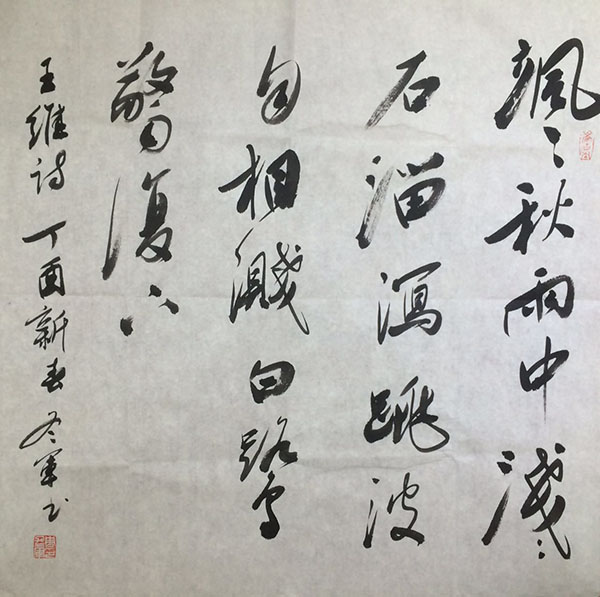 颯〻秋雨中淺〻
石溜瀉跳波
自相濺白鷺
驚復下
王維诗 丁酉新春 冬軍书